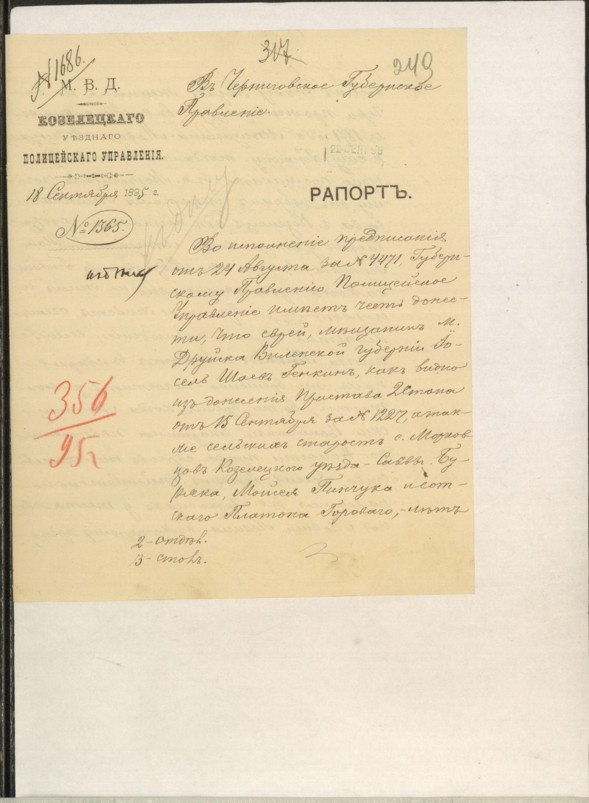 317
249
№ 1686.
М. В. Д.
КОЗЕЛЕЦКАГО
УѢЗДНАГО
ПОЛИЦЕЙСКАГО УПРАВЛЕНІЯ.
18 Сентября 1895 г.
№ 1365.
Въ Черниговское Губернское
Правленіе.
РАПОРТЪ.
Во исполненіе предписанія
отъ 24 Августа за № 4471, Губерн-
скому Правленію Полицейское
Управленіе имѣетъ честь донес-
ти, что еврей, мѣщанинъ м.
Друйска Виленской губерніи Іо-
сель Шаевъ Генкинъ, какъ видно
изъ донесенія Пристава 2 стана
отъ 15 Сентября за № 1227, а так-
же сельскихъ старостъ с. Марков-
цовъ Козелецкаго уѣзда - Саввы Бу-
ряка, Мойсея Пинчука и сот-
скаго Платона Гороваго, - лѣтъ
2 - отдѣл.
3 - столъ.
356
95 г